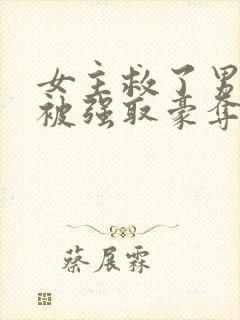 女主救了男
被强取豪夺
蔡展霖